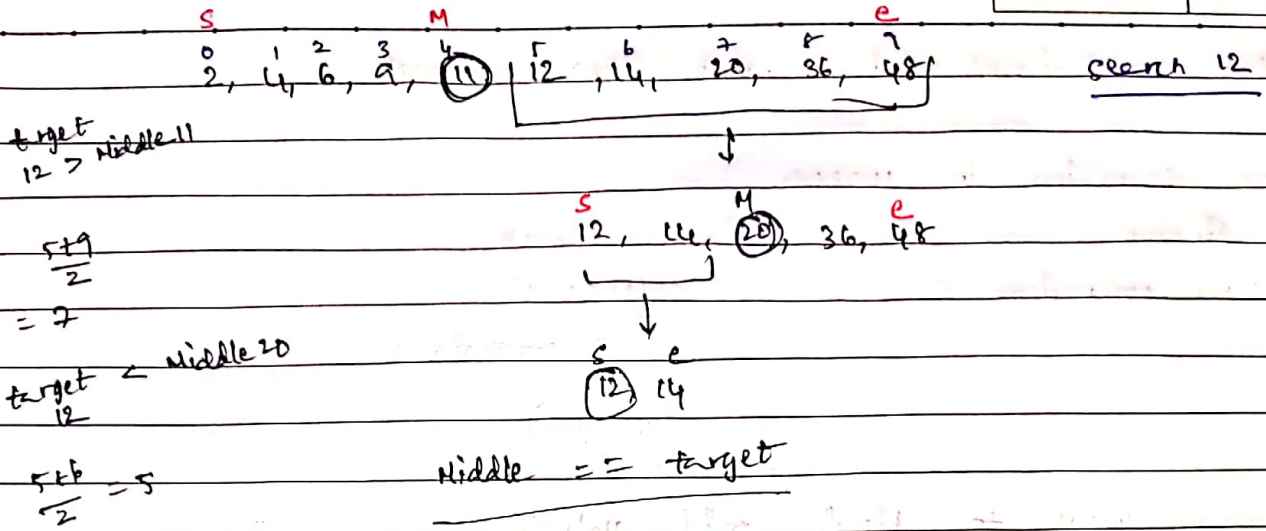 S M e
0 1 2 3 4 5 6 7 8 9
2, 4, 6, 9, 11 12, 14, 20, 36, 48 search 12
target
12 > Middle 11
S M e
12, 14, 20, 36, 48
5+9
2
= 7
target < Middle 20
12
S e
12, 14
5+6
2
= 5
Middle == target